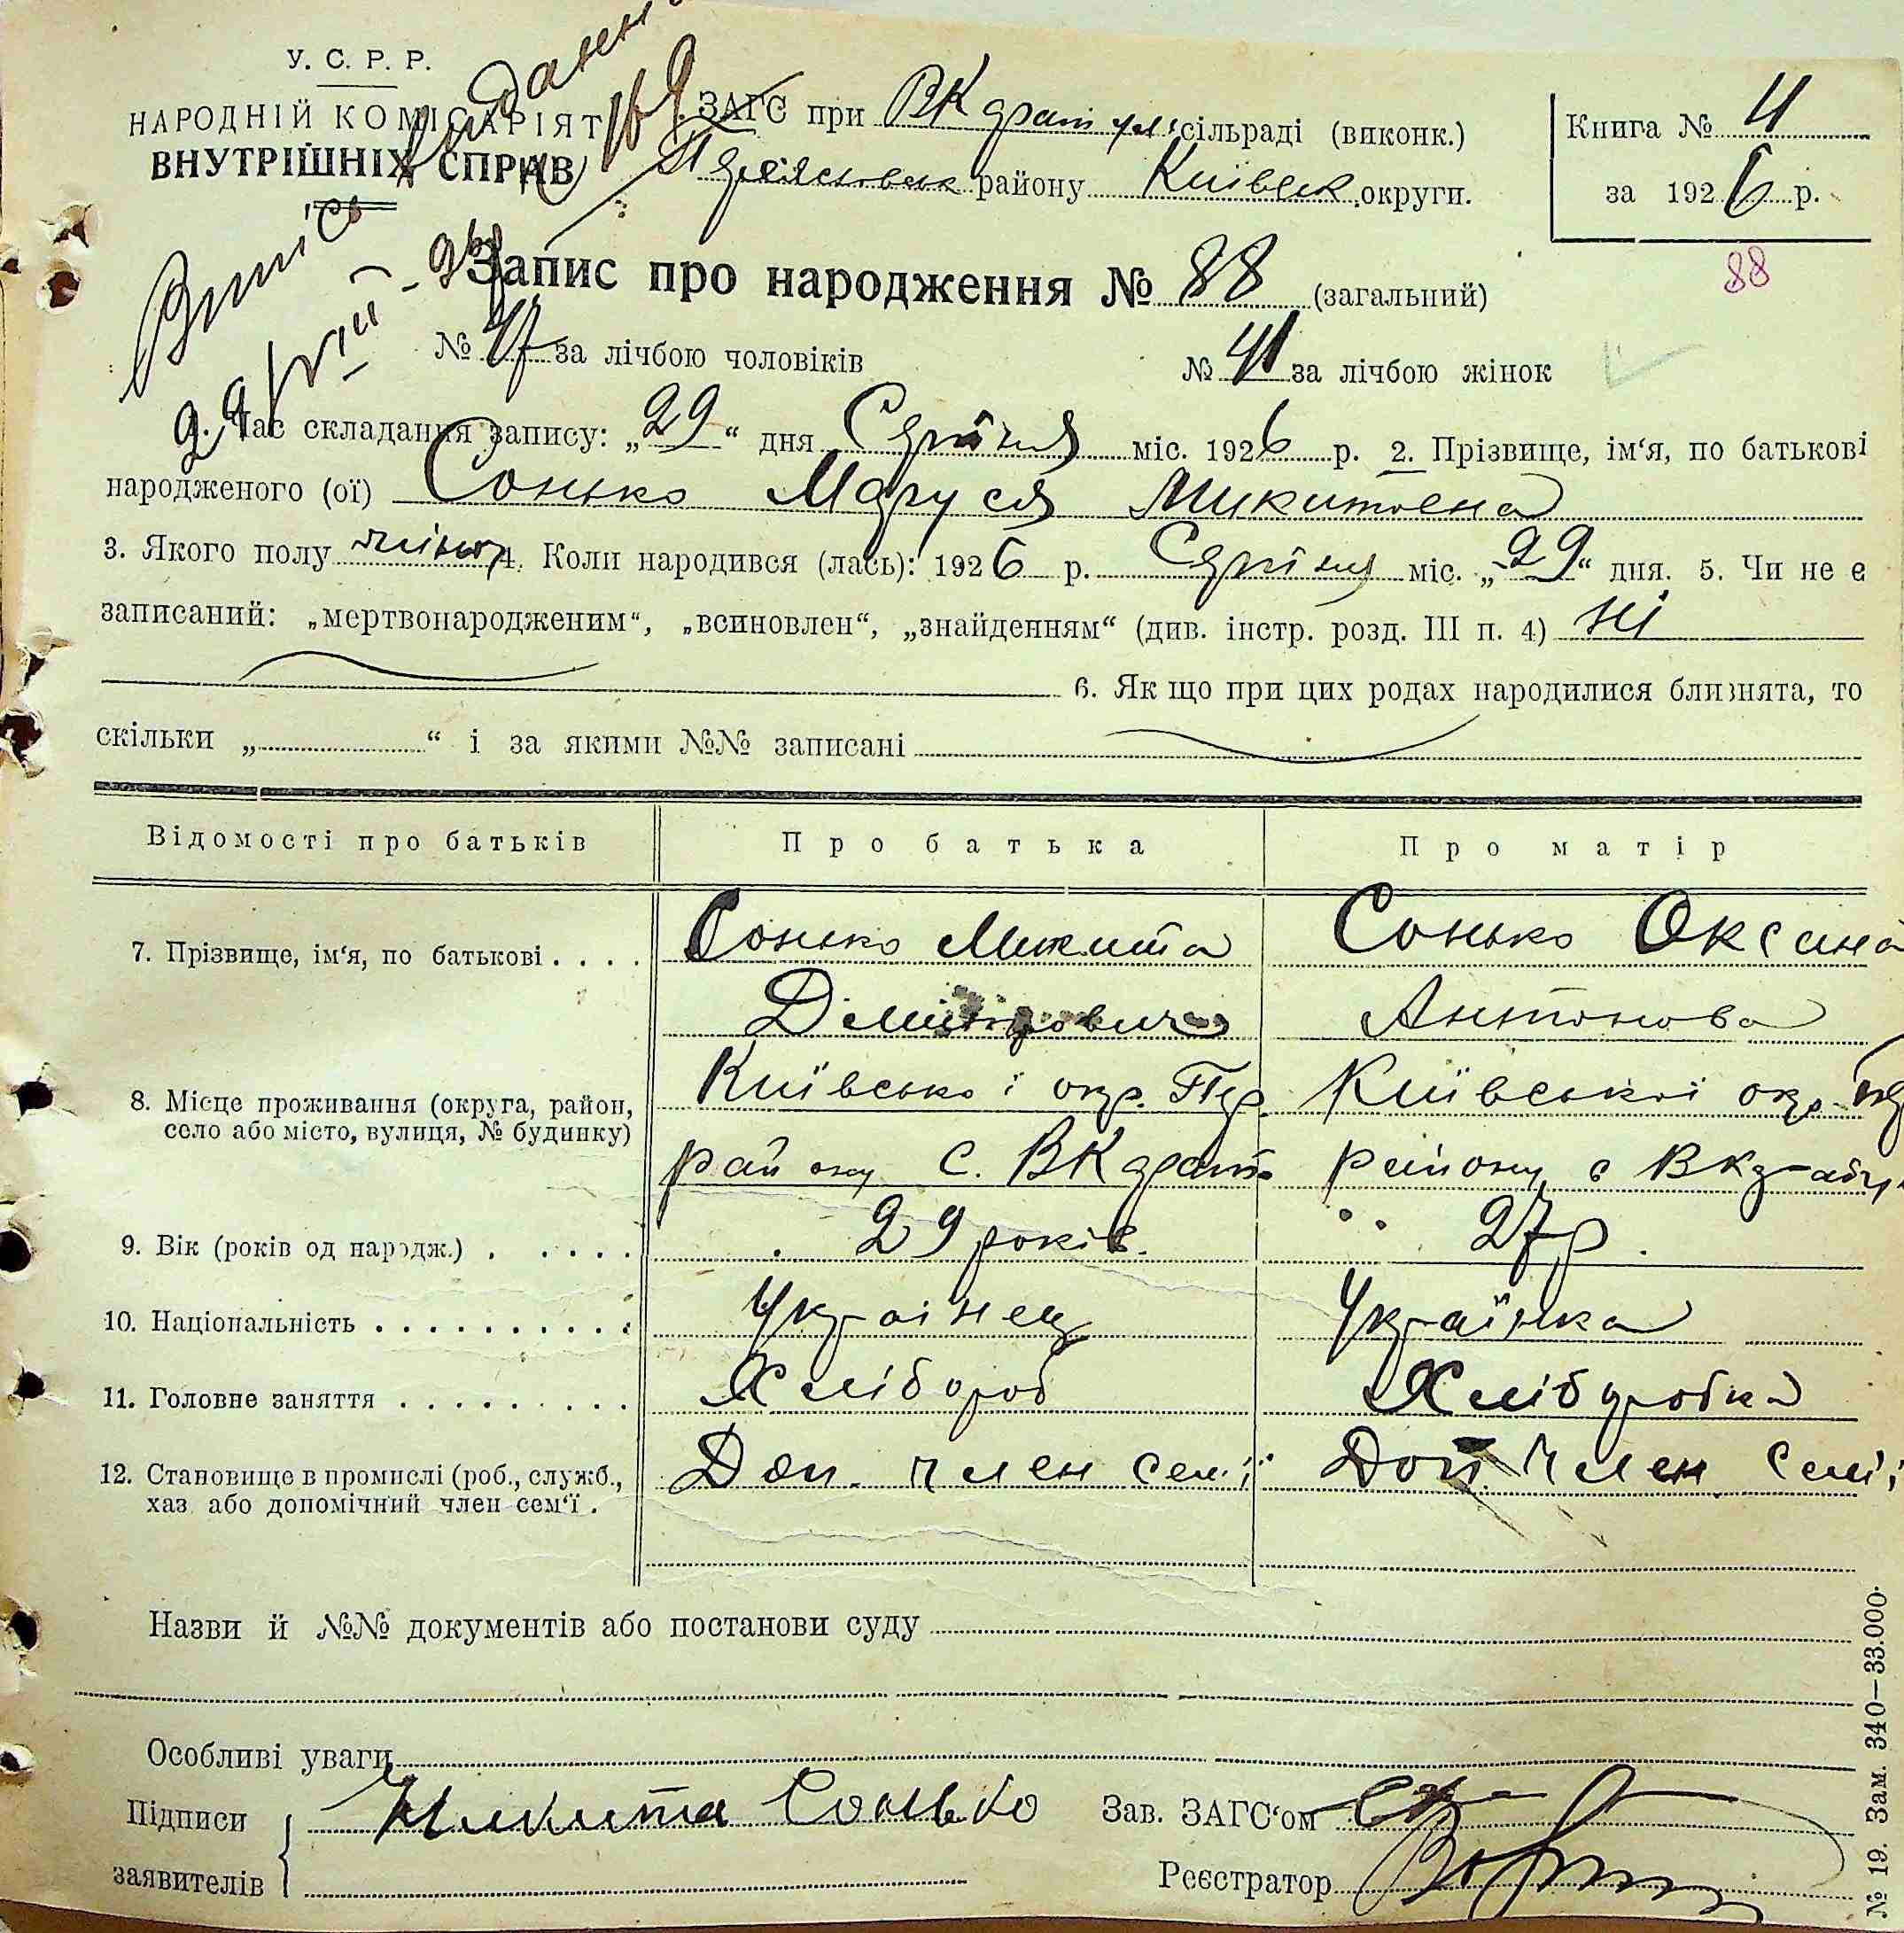 У. С. Р. Р.
НАРОДНІЙ КОМІСАРІЯТ
ВНУТРІШНІХ СПРАВ
ЗАГС при ВКаратул сільраді (виконк.)
району Київськ округи.
Книга № 4
за 1926 р.
88
Випись
Запис про народження № 88 (загальний)
№ 47 за лічбою чоловіків № 41 за лічбою жінок
1. Час складання запису: „29“ дня Серпня міс. 1926 р. 2. Прізвище, ім‘я, по батькові
народженого (ої) Сонько Маруся Микитовна
3. Якого полу жіноч 4. Коли народився (лась): 1926 р. Серпня міс. „29“ дня. 5. Чи не є
записаний: „мертвонародженим“, „всиновлен“, „знайденням“ (див. інстр. розд. III п. 4) ні
6. Як що при цих родах народилися близнята, то
скільки „ “ і за якими №№ записані
Відомості про батьків Про батька Про матір
7. Прізвище, ім‘я, по батькові . . . . Сонько Микита Сонько Оксана
Дємитрович Антонова
8. Місце проживання (округа, район, село або місто, вулиця, № будинку) Київської окр. Пер. Київської окр. Пер
району с. ВКарат району с ВКарату
9. Вік (років од народж.) . . . . . 29 років. 27 р.
10. Національність . . . . . . . . . . . Українец Українка
11. Головне заняття . . . . . . . . . . Хлібороб Хліборобка
12. Становище в промислі (роб., служб., хаз або допомічний член сем‘ї . Доп. член семї Доп. член семї
Назви й №№ документів або постанови суду
Особливі уваги
Підписи заявителів Микита Сонько
Зав. ЗАГС‘ом
Реєстратор
№ 19. Зам. 340—33.000.